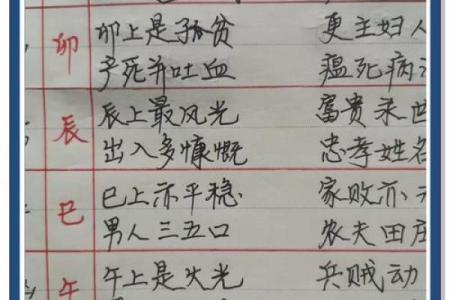 卯
卯上是孤贫 更主妇人
产死并吐血 瘟死病
辰
辰上最风光 富贵录世
出入多慷慨 忠孝姓名
巳
巳上亦平稳 家败亦
男人三五口 农夫田庄
午
午上是火光 兵贼动